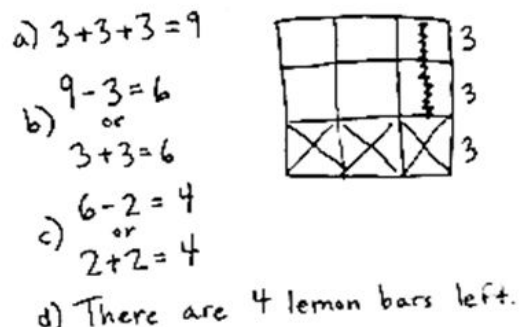 a) 3+3+3=9
3
3
3
b) 9-3=6
or
3+3=6
c) 6-2=4
or
2+2=4
d) There are 4 lemon bars left.